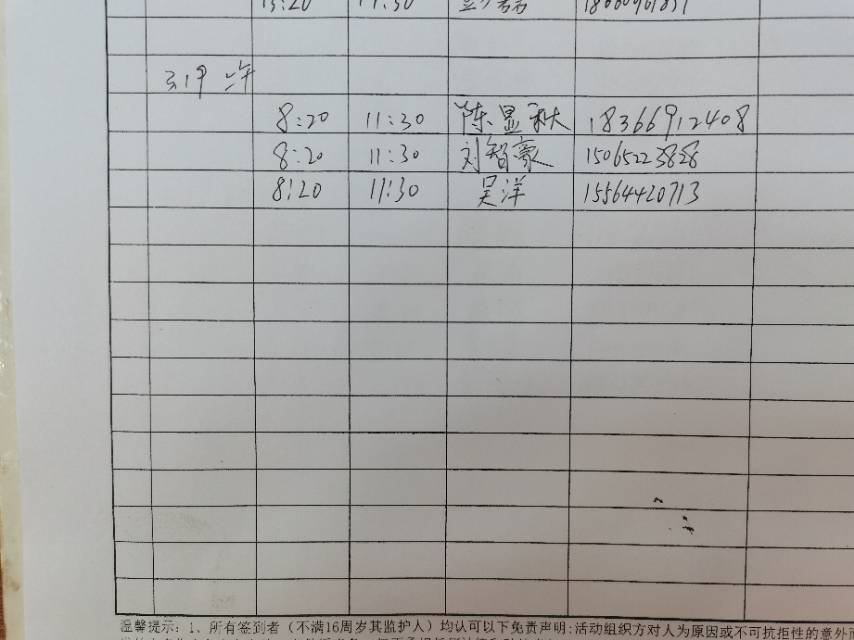 13:20 17:30
8:20 11:30 陈显秋 18366912408
8:20 11:30 刘智豪 15065223828
8:20 11:30 吴洋 15564420713
温馨提示：1、所有签到者（不满16周岁其监护人）均认可以下免责声明：活动组织方对人为原因或不可抗拒性的意外